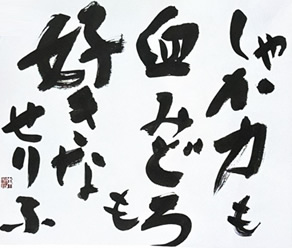 しゃか力も
血みどろも
好きな
せりふ